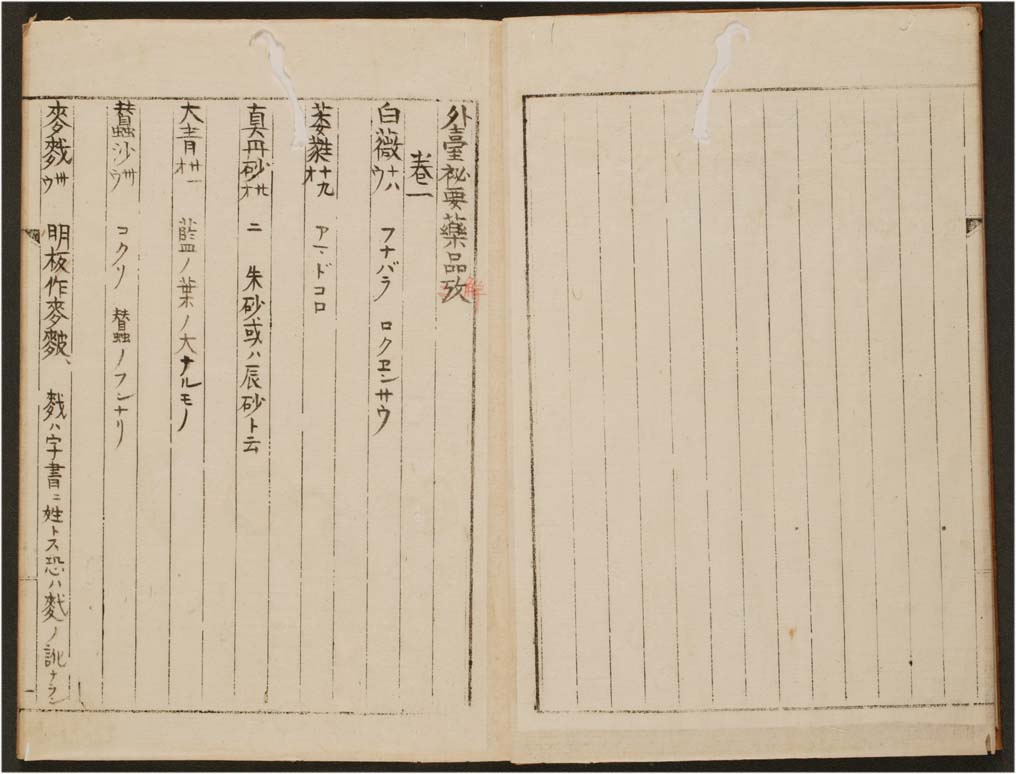 外臺祕要藥品攷
解
卷一
白薇 十八ウ フナバラ ロクヱンサウ
萎蕤 十九オ アマドコロ
真丹砂 廿オ 二 朱砂或ハ辰砂ト云
大青 廿一オ 藍ノ葉ノ大ナルモノ
蠶沙 卅ウ コクソ 蠶ノフンナリ
麥𪍿 卅ウ 明板作麥麬、 ハ字書ニ姓トス恐ハ ノ訛ナラン